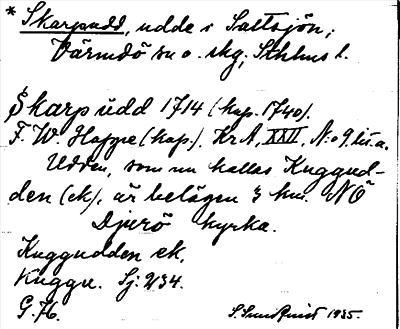 * Skarpudd, udde i Saltsjön,
Värmdö sn o. skg, Sthlms l.
Skarp udd 1714 (kop. 1740).
F. W. Hofgre (kap.). KrA, XXII, N:o 9 lit. a.
Udden, som nu kallas Kuggud-
den (ek), är belägen 3 km. NÖ
Djurö kyrka.
Kuggudden ek,
Kuggu. Sj: 234.
G.H.
S. Sundquist 1935.